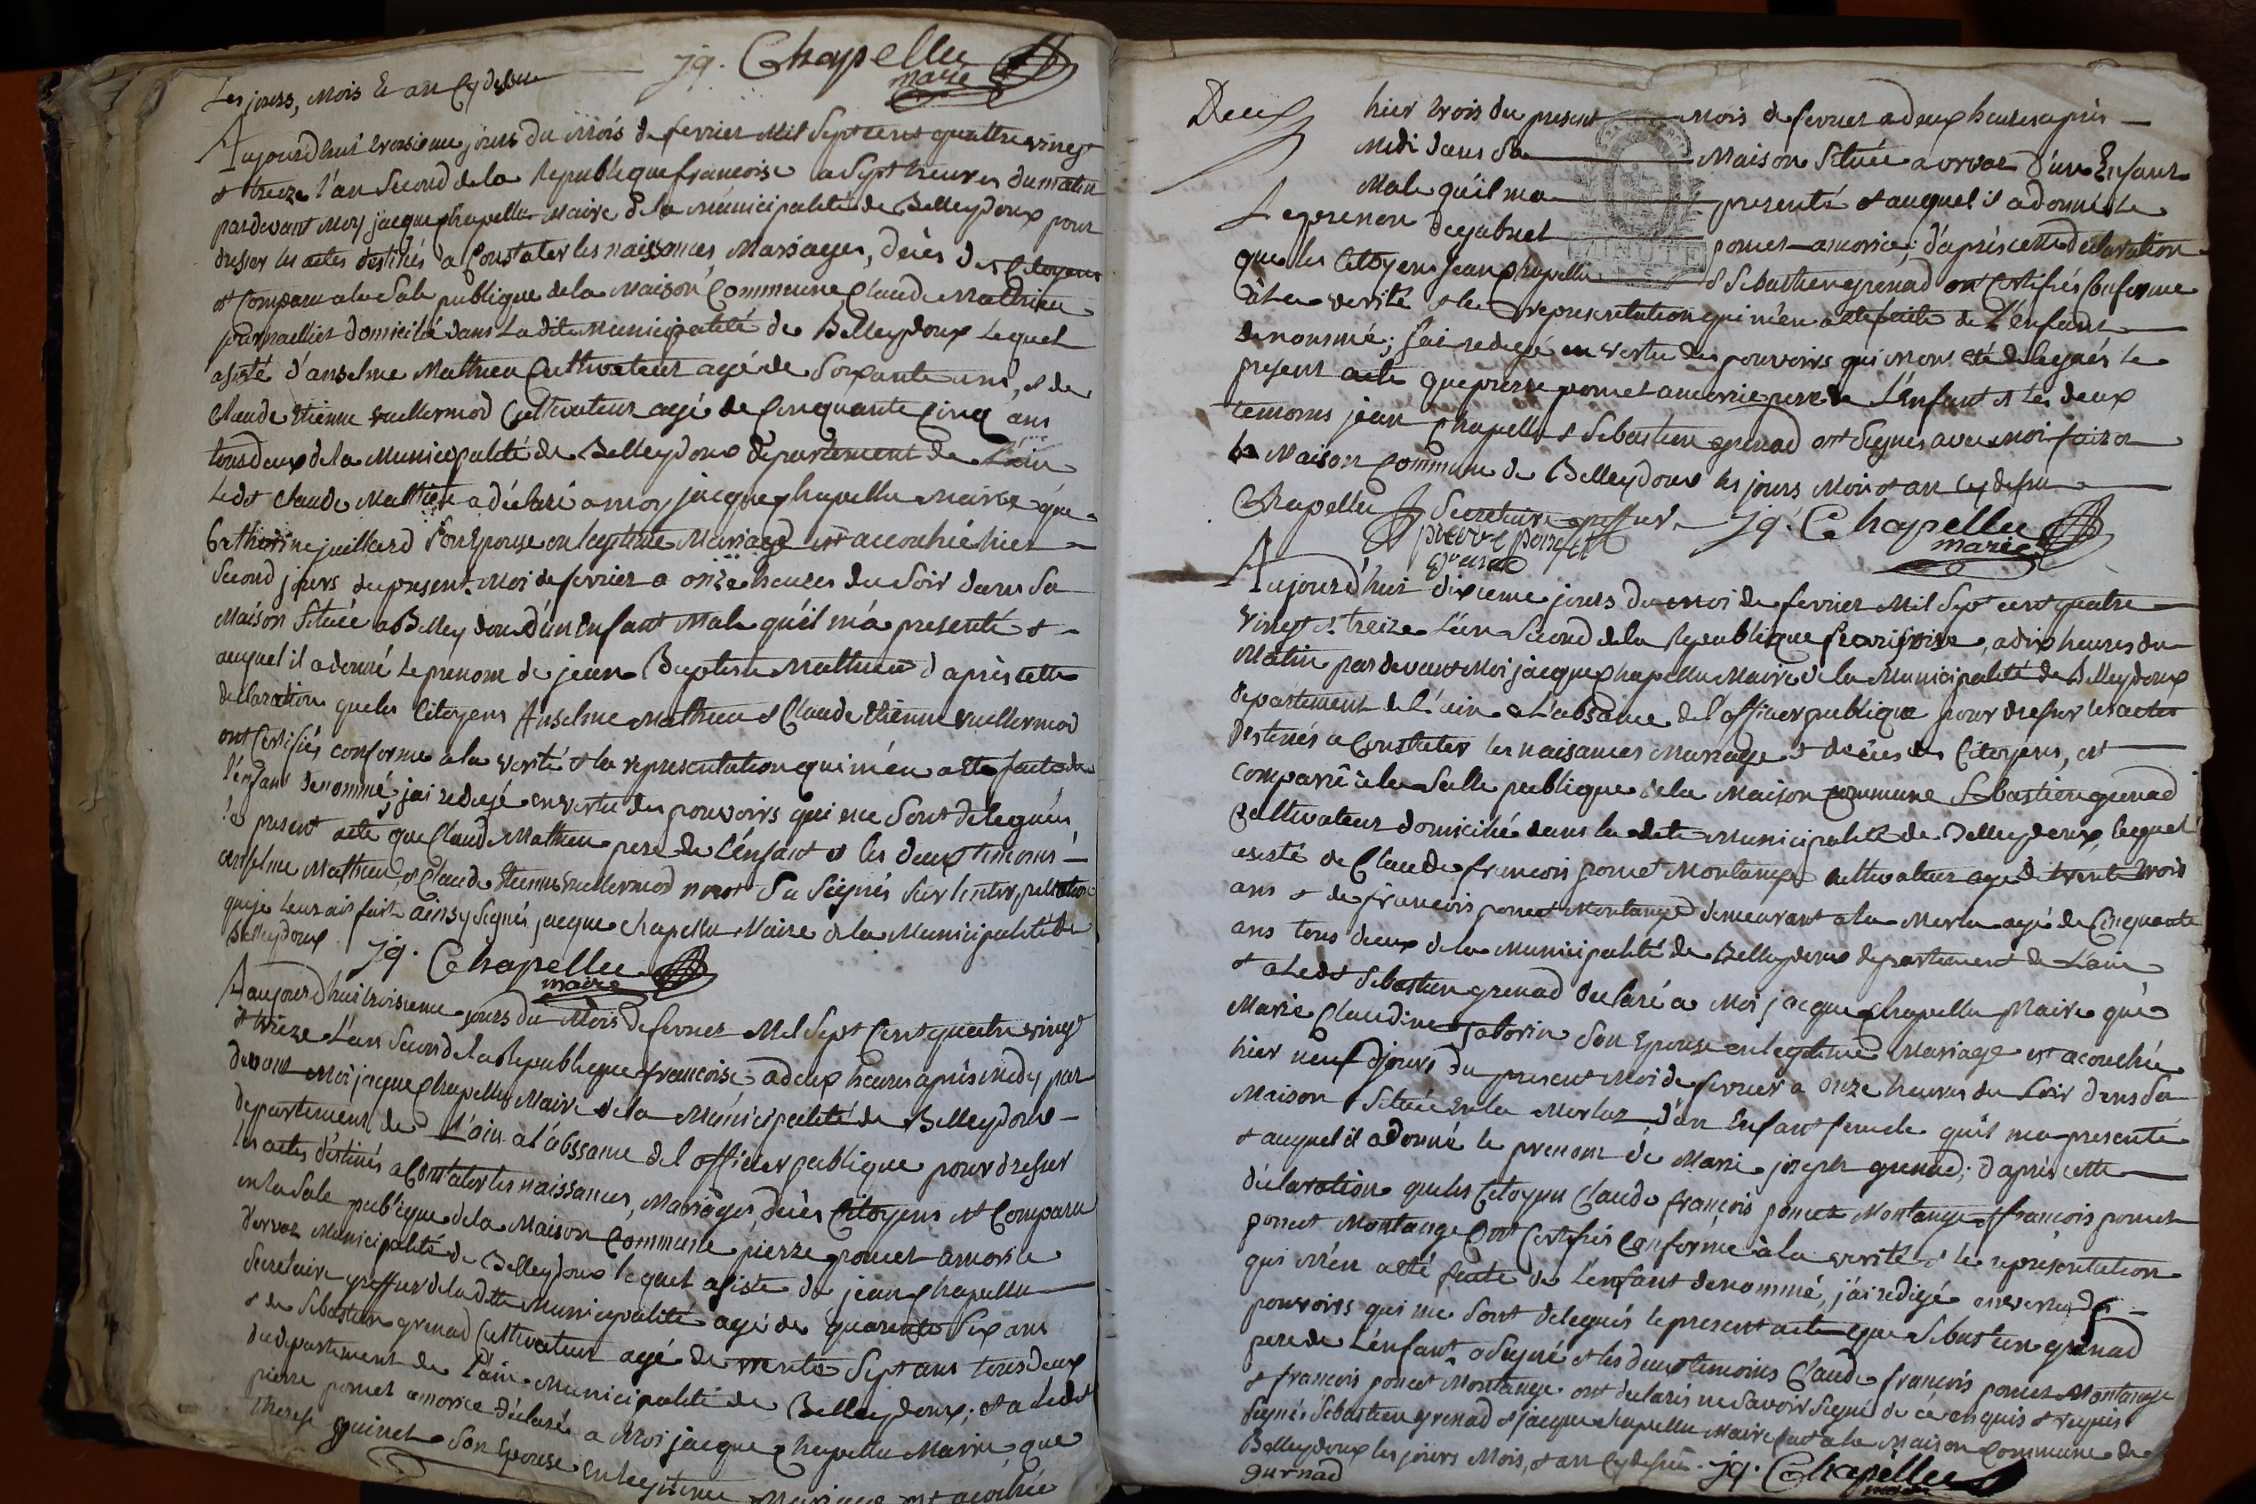 Les jours, Mois & an Cy dessu
jq. Chapellu
maire
Aujourd'hui troisieme jours du Mois de fevrier Mil Sept cent quattre vingt
& treize l'an Second de la Republique francoise a Sept heures du matin
pardevant Moy jacque Chapellu Maire de la Municipalité de Belleydoux pour
dresser les actes destinés a Constater les naissances Mariages, décès des Citoyens
est Comparu a la Sale publique de la Maison Commune Claude Mathieu
journallier domicilié dans La dite Municipalité de Belleydoux Lequel
asisté d'anselme Mathieu Cultivateur agé de Soixante ans, & de
Claude Etienne vuillermod Cultivateur agé de Cinquante Cinq ans
tous deux de la Municipalité de Belleydoux departement de L'ain
Ledt Claude Mathieu a déclaré a moy jacque Chapellu Maire que
Catherine juilliard Son Epouse en legitime Mariage est accouchée hier
Second jours du present Moi de fevrier a onze heures du Soir dans Sa
Maison Située a Belleydoux D'un Enfant Male qu'il m'a presenté &
auquel il a donné Le prenom de jean Baptiste Mathieu d'après cette
declaration que les Citoyens Anselme Mathieu & Claude Etienne vuillermod
ont Certifiés conforme a la verité & la representation qui m'en a été faite de
l'enfant denommé, j'ai redigé en vertu des pouvoirs qui me Sont delegués
le present acte que Claude Mathieu pere de L'enfant & les deux temoins
anselme Mathieu, & Claude Etienne vuillermod n'ont Su Signés Sur l'interpellation
que je leur ais fait ainsy Signés jacque Chapellu Maire de la Municipalité de
Belleydoux jq. Chapellu
maire
Aaujourd'hui troisieme jours du Mois de fevrier Mil Sept Cent quatre vingt
& treize L'an Second de la Republique francoise, a deux heures après midy par
devant Moi jacque Chapellu Maire de la Municipalité de Belleydoux
departement de L'ain a l'abssance de l'officier publique pour dresser
les actes d'estinés a Constater les naissances, Mariages, décès Citoyens est Comparu
en la Sale publique de la Maison Commune pierre poncet amorice
dorvaz Municipalité de Belleydoux lequel asisté de jean Chapellu
Secretaire greffier de la dite Municipalité agé de quarente Six ans
& de Sebastien grenad Cultivateur agé de trente Sept ans tous deux
du departement de L'ain Municipalité de Belleydoux; & a ledt
pierre poncet amorice déclaré a Moi jacque Chapellu Maire, que
therese guinet Son Epouse en legitime Mariage est acouchée
Deux
hier trois du present Mois de fevrier a deux heures après
Midi dans Sa Maison Située a orvaz d'un Enfant
Male qu'il ma presenté & auquel il a donné le
Le prenom de gabriel poncet amorice; d'après cette declaration
que les Citoyens jean Chapellu & Sebastien grenad ont Certifiés Conforme
à la verité & la representation qui m'en a été faite de L'enfant
denommé; j'ai redigé en vertu des pouvoirs qui m'ont été delegués le
present acte que pierre poncet amorice pere de L'enfant & les deux
temoins jean Chapellu & Sebastien grenad ont Signés avec moi fait a
la Maison Commune de Belleydoux les jours Mois & an Cy dessu
Chapellu Secretaire greffier jq. Chapellu
maire
pierre poncet
grenad
Aujourd'hui dixieme jours du moi de fevrier Mil Sept cent quatre
vingt & treize L'an Second de la Republique francoise, a dix heures du
Matin par devant Moi jacque Chapellu Maire de la Municipalité de Belleydoux
departement de L'ain a L'absance de l'officier publique pour dresser les actes
Destinés a Constater les naisances Mariage & décès des Citoyens, est
comparu à la Salle publique de la Maison Commune Sebastien grenad
Cultivateur domicilié dans la dite Municipalité de Belleydoux lequel
asisté de Claude francois poncet Montange cultivateur agé de trente trois
ans & de francois poncet Montange demeurant a la Merla agé de Cinquante
ans tous deux de la Municipalité de Belleydoux departement de L'ain
& a Ledt Sebastien grenad declaré a Moi jacque Chapellu Maire que
Marie Claudine Son Epouse en legitime Mariage est acouchée
hier neuf jours du present Moi de fevrier a onze heures du Soir dans Sa
Maison Située en la Merlaz, d'un Enfant femele qu'il m'a presenté
& auquel il a donné le prenom de Marie joseph grenad; d'après cette
déclaration que les Citoyen Claude françois poncet Montange & françois poncet
poncet Montange ont Certifiés Conforme à la verité & le représentation
qui m'en a été faite de L'enfant denommé, j'ai redigé en vertu des
pouvoirs qui me Sont delegués le present acte que Sebastien grenad
pere de L'enfant a Signé & les deux temoins Claude françois poncet Montange
& françois poncet Montange ont declarés ne Savoir Signé de ce enquis & requis
Signés Sebastien grenad & jacque Chapellu Maire fait a la Maison Commune de
Belleydoux les jours Mois, & an Cy dessu. jq. Chapellu
gurnad